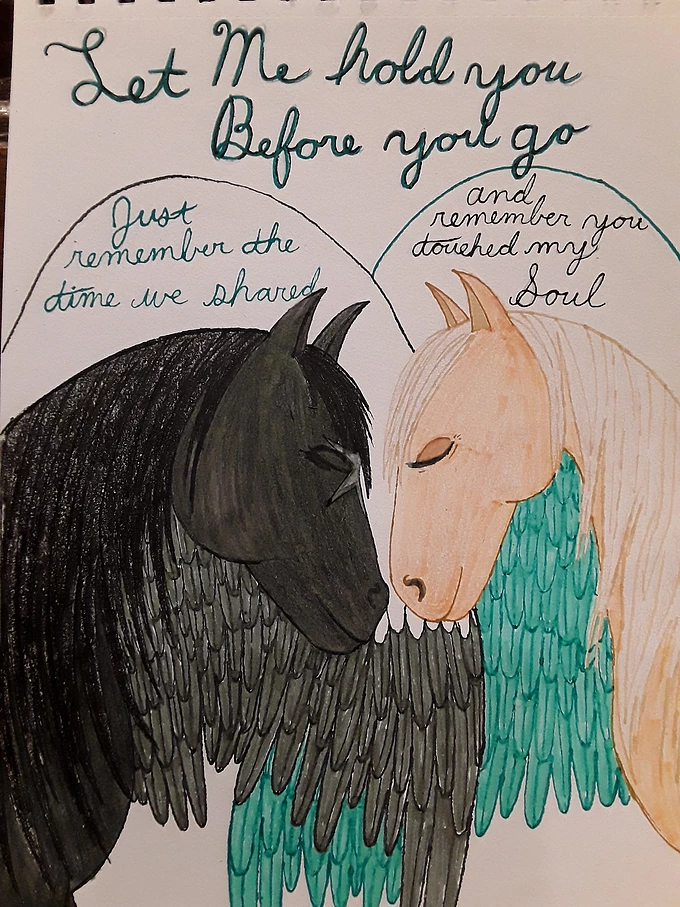 Let Me hold you
Before you go
Just
remember the
time we shared
and
remember you
touched my
Soul